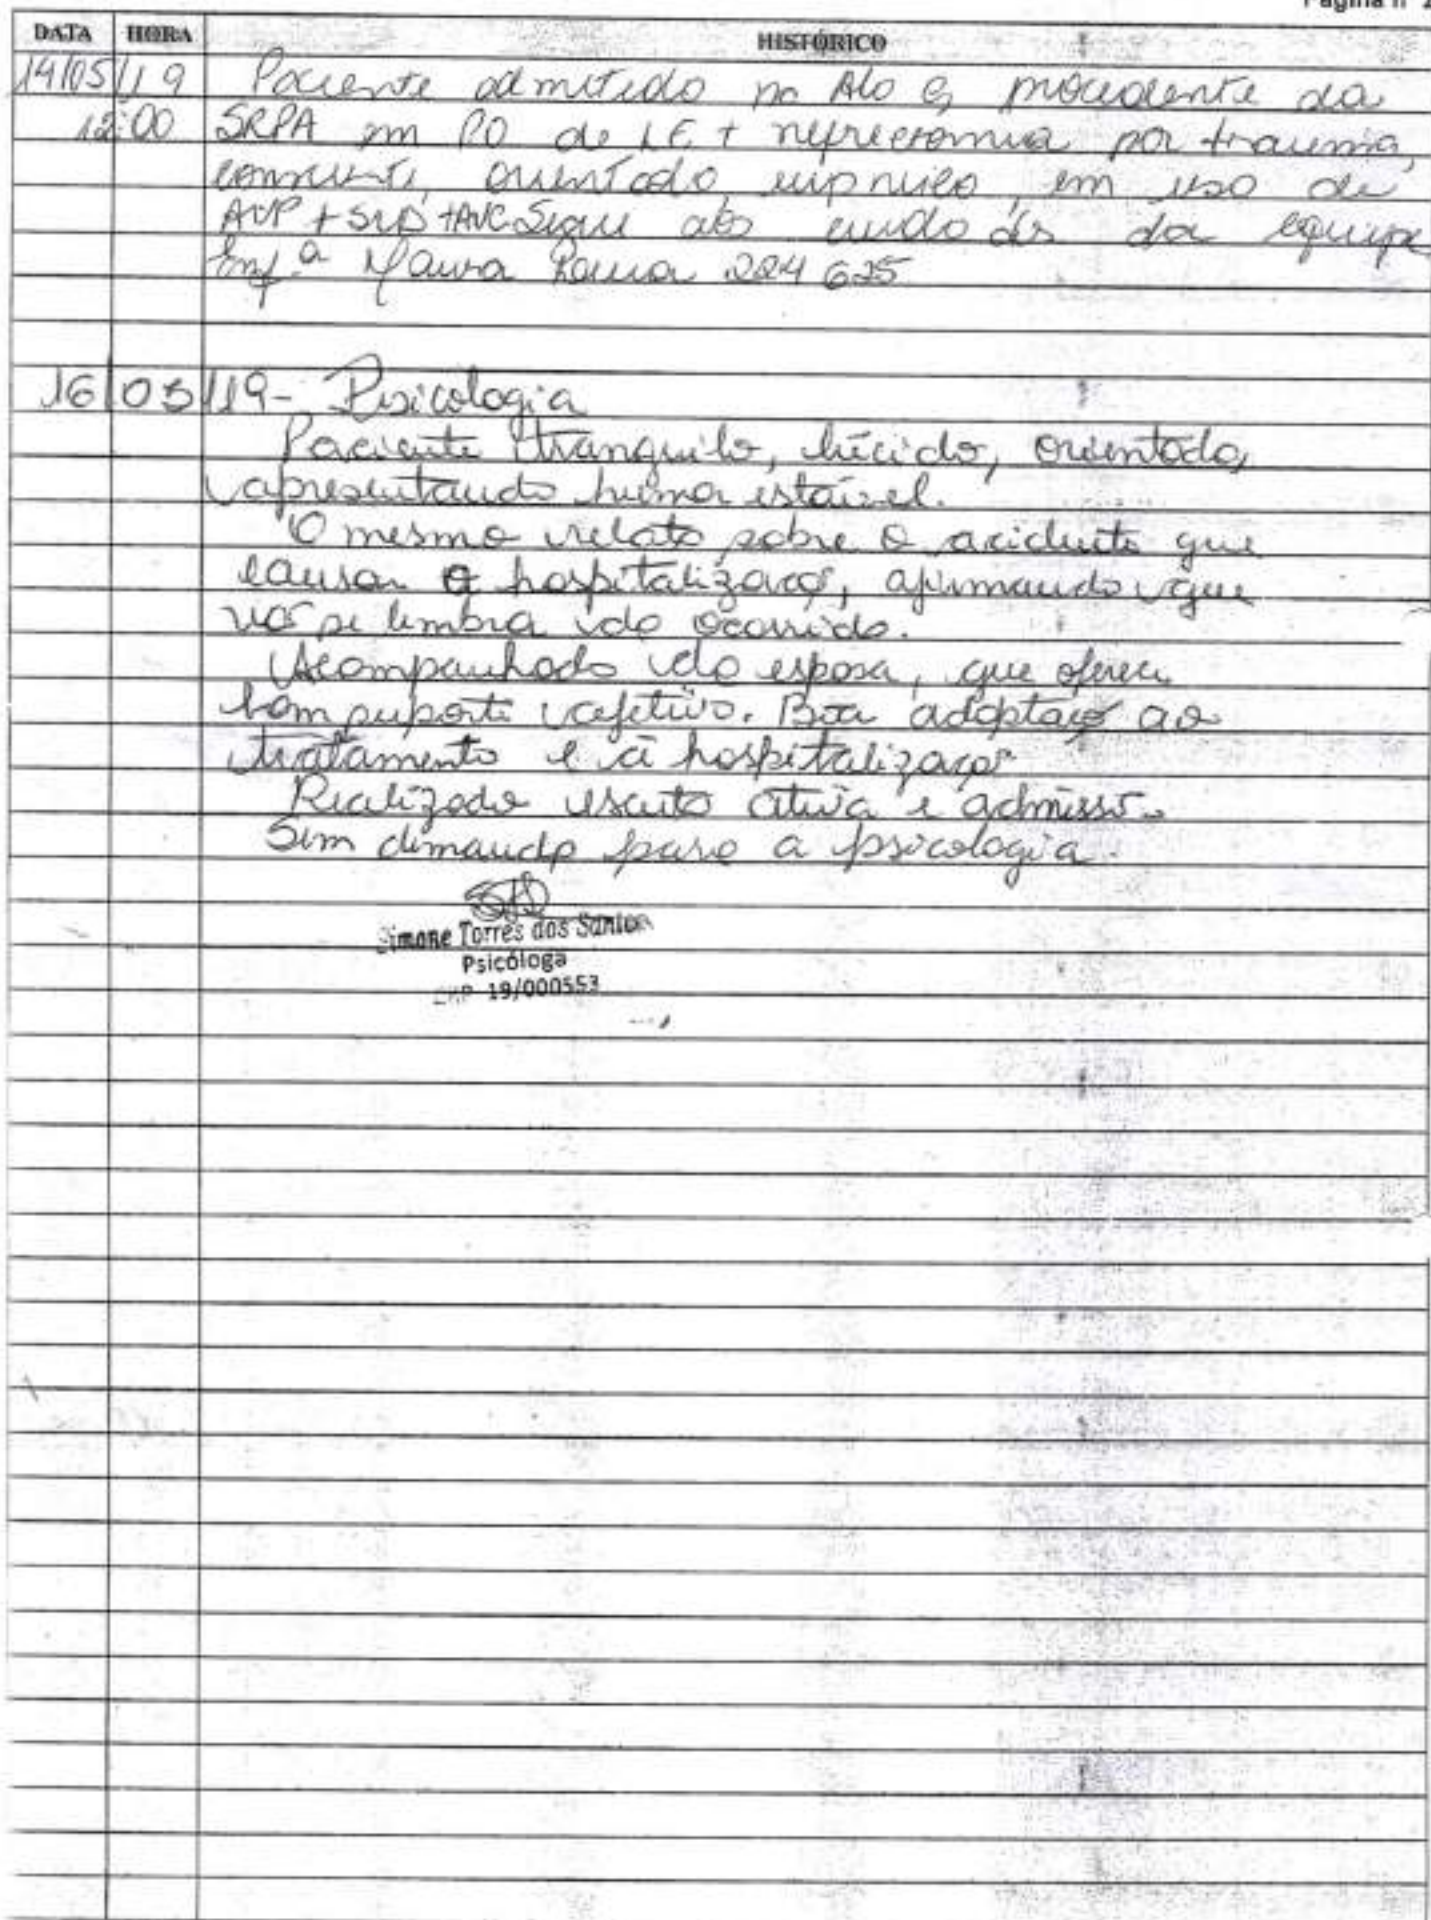 Página nº 2
DATA HORA HISTÓRICO
14/05/19 Paciente admitido na Ala G, procedente da
12:00 SRPA em PO de LE + nefrectomia por trauma,
consciente, orientado, eupneico, em uso de
AVP + SVD + AVC Segue aos cuidados da equipe
Enfª 224 625
16/05/19 - Psicologia
Paciente tranquilo, lúcido, orientado,
apresentando humor estável.
O mesmo relata sobre o acidente que
causou a hospitalização, afirmando que
não se lembra do ocorrido.
Acompanhado da esposa, que oferece
bom suporte afetivo. Boa adaptação ao
tratamento e à hospitalização
Realizado escuta ativa e admissão.
Sem demanda para a psicologia.
Simone Torres dos Santos
Psicóloga
CRP 19/000553